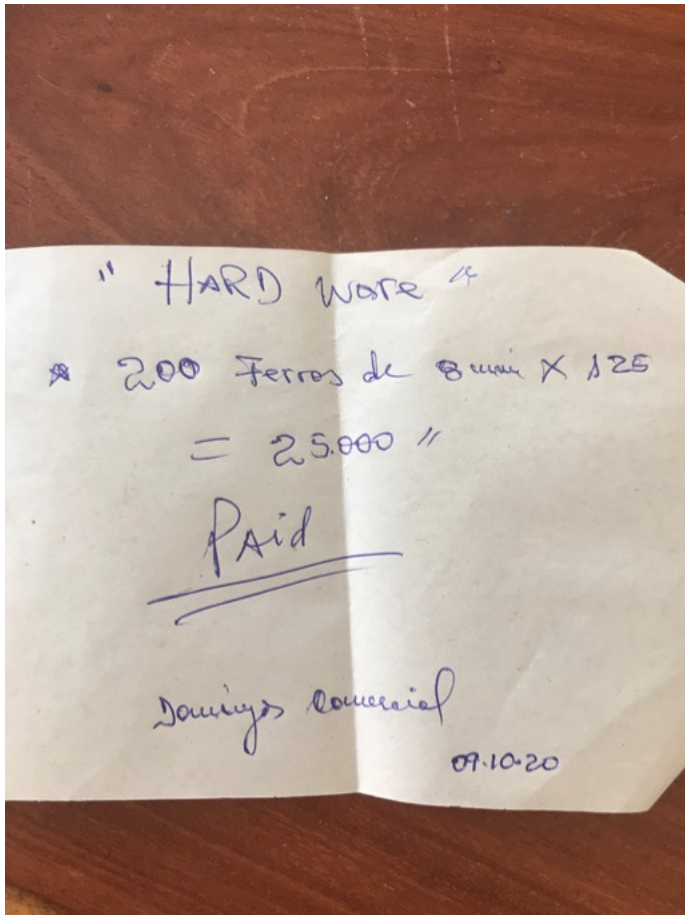 " HARD ware "
* 200 Ferros de 8 mm X 125
= 25.000 "
PAid
Domingos Comercial
09.10.20